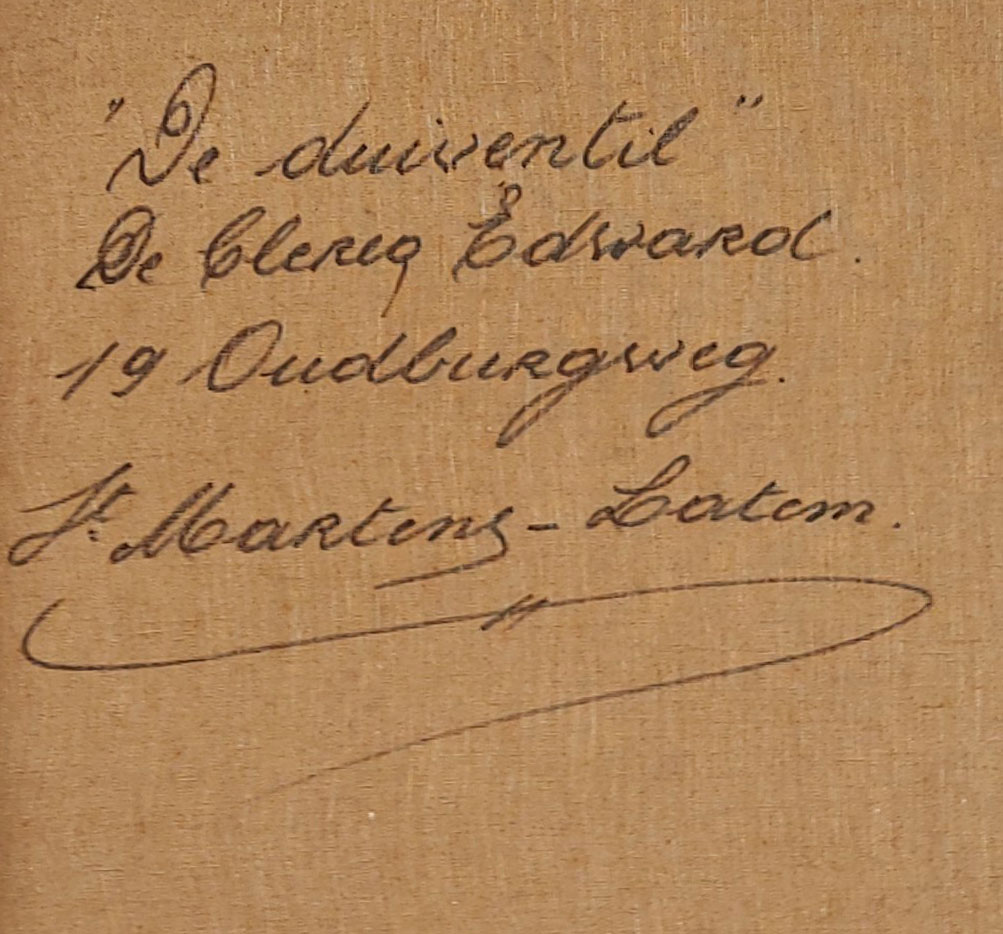 "De duiventil"
De Clercq Edward.
19 Oudburgweg.
St. Martens - Latem.